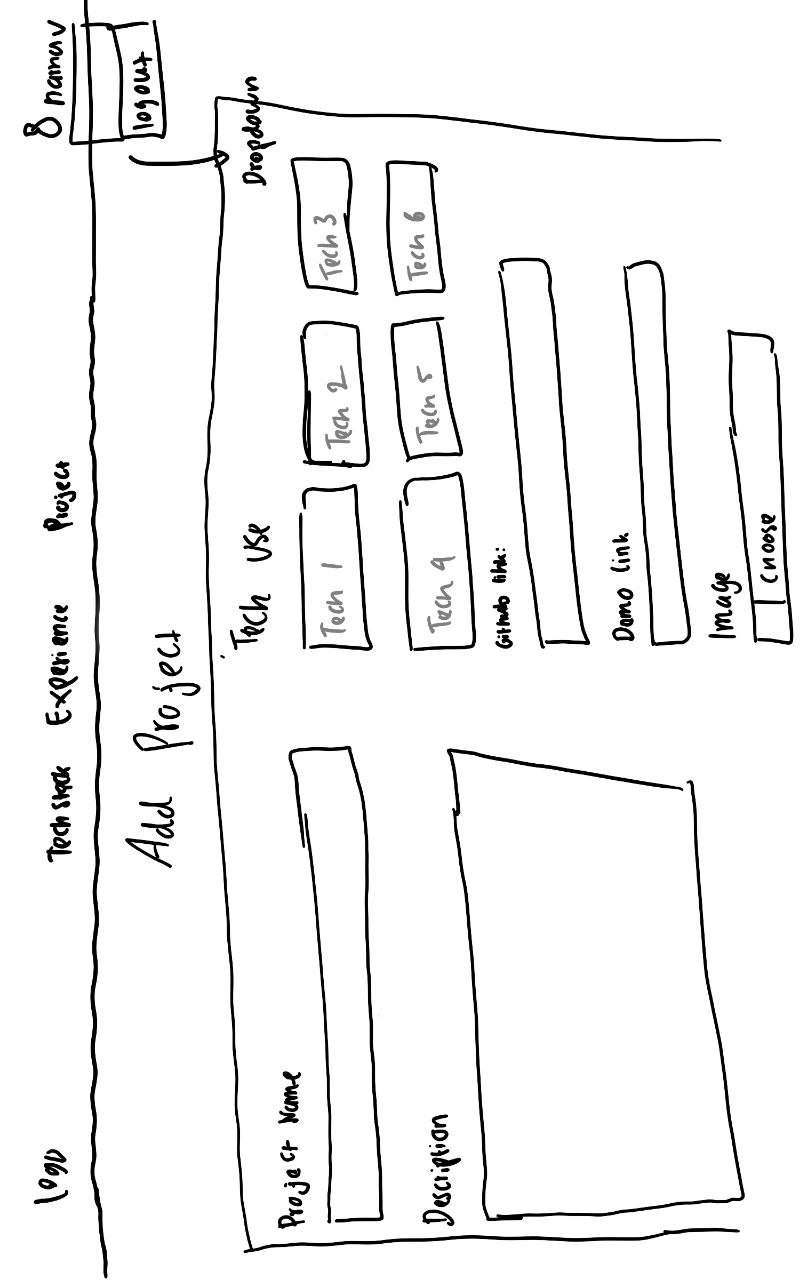 logo
Tech stack Experience Project
8 nanav
logout
Dropdown
Add Project
Project Name
Description
Tech use
Tech 1 Tech 2 Tech 3
Tech 4 Tech 5 Tech 6
Github link:
Demo link
Image
Choose